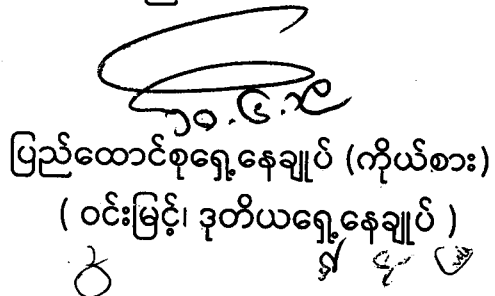 ပြည်ထောင်စုရှေ့နေချုပ် (ကိုယ်စား)
( ဝင်းမြင့်၊ ဒုတိယရှေ့နေချုပ် )